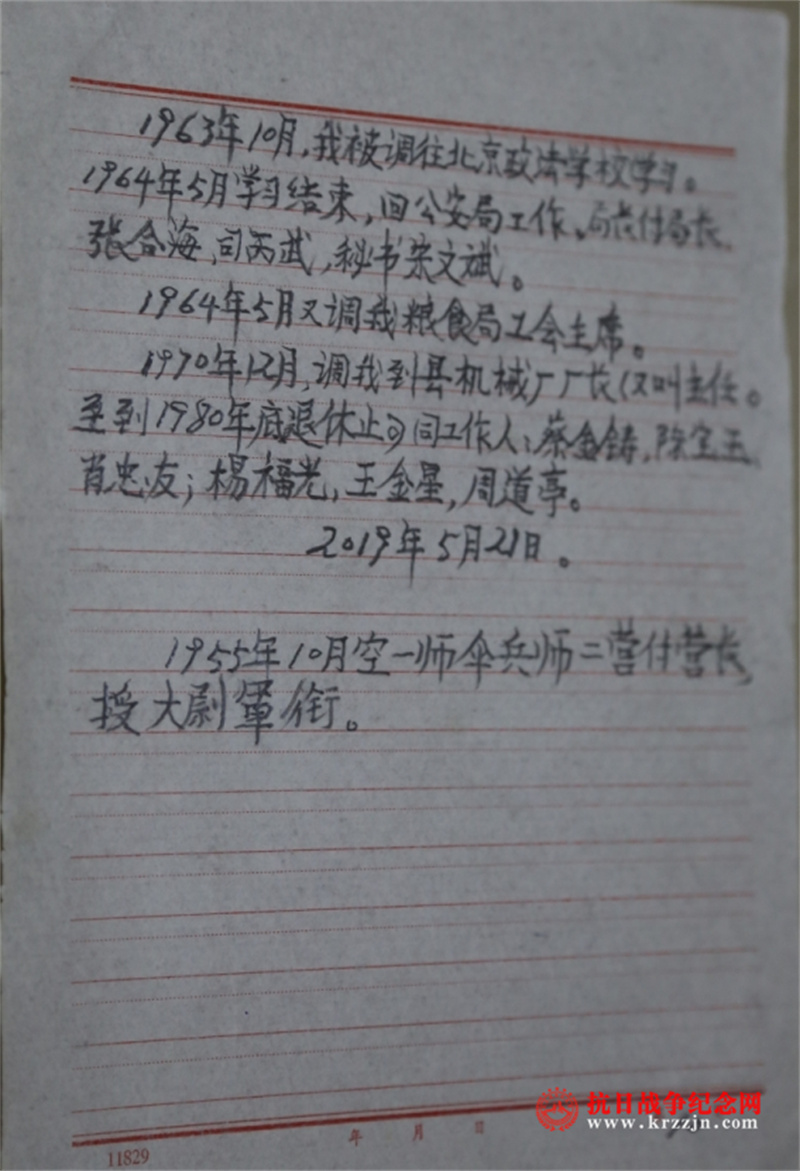 1963年10月,我被调往北京政法学校学习。
1964年5月学习结束,回公安局工作。局长付局长,
张合海,司丙武,秘书宋文斌。
1964年5月又调我粮食局工会主席。
1970年12月,调我到县机械厂厂长(又叫主任。
至到1980年底退休止)同工作人:蔡金铸,陈宝玉,
肖忠友;杨福光,王金星,周道亭。
2019年5月21日。
1955年10月空一师伞兵师二营付营长,
授大尉軍衔。
年 月 日
11829
抗日战争纪念网
www.krzzjn.com